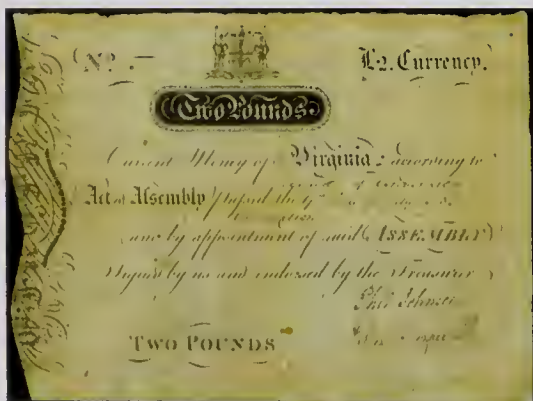 No. —
£2. Currency.
Two Pounds
Current Money of Virginia according to
Act of Assembly passed the
and by appointment of said ASSEMBLY
Signed by us and endorsed by the Treasurer
Phil Johnson
TWO POUNDS